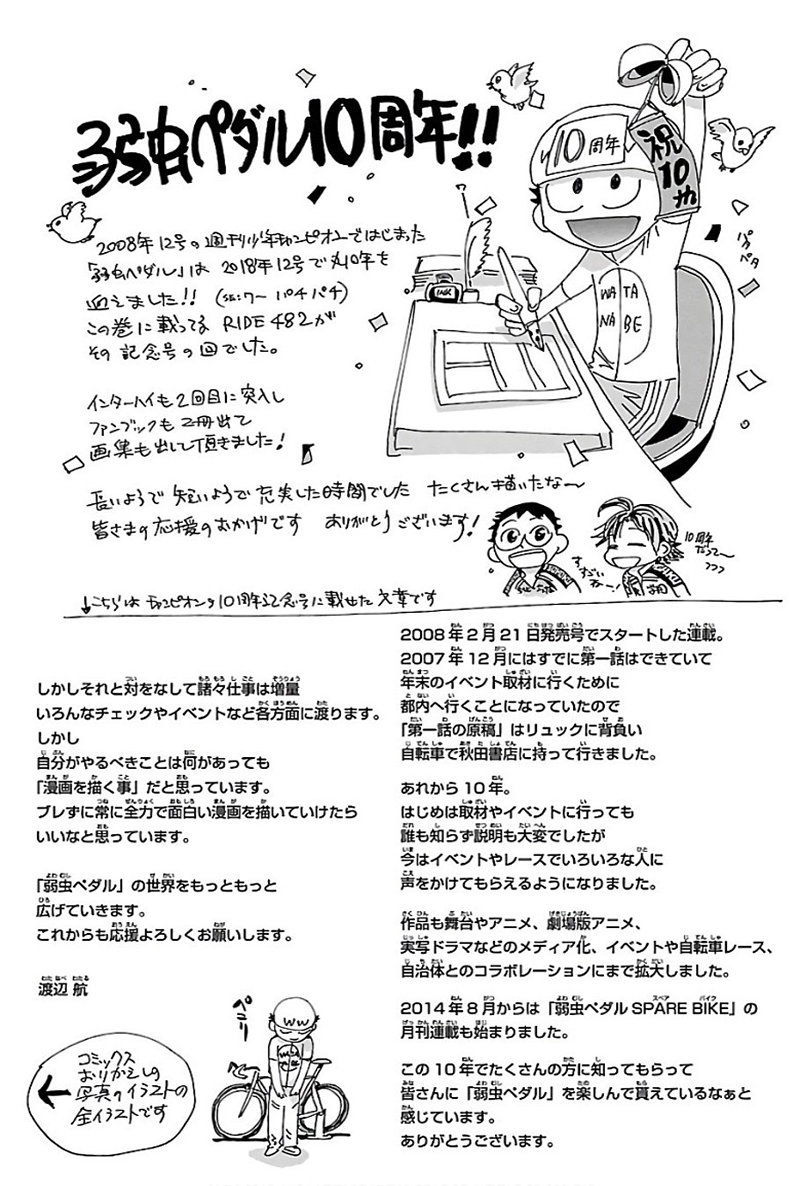 弱虫ペダル10周年!!
10周年
祝10th
パタパタ
2008年12号の週刊少年チャンピオンではじまった
「弱虫ペダル」は 2018年12号で丸10年を
迎えました!!
ワー パチパチ)
この巻に載ってる RIDE 482が
その記念号の回でした。
INK
WATA
NABE
インターハイも2回目に突入し
ファンブックも2冊出て
画集も出して頂きました!
長いようで短いようで充実した時間でした たくさん描いたな〜
皆さまの応援のおかげです ありがとうございます!
すっごいね〜!
10周年
だって〜
↓こちらはチャンピオンの10周年記念号に載せた文章です
2008年2月21日発売号でスタートした連載。
2007年12月にはすでに第一話はできていて
年末のイベント取材に行くために
都内へ行くことになっていたので
「第一話の原稿」はリュックに背負い
自転車で秋田書店に持って行きました。
あれから10年。
はじめは取材やイベントに行っても
誰も知らず説明も大変でしたが
今はイベントやレースでいろいろな人に
声をかけてもらえるようになりました。
作品も舞台やアニメ、劇場版アニメ、
実写ドラマなどのメディア化、イベントや自転車レース、
自治体とのコラボレーションにまで拡大しました。
2014年8月からは「弱虫ペダルSPARE BIKE」の
月刊連載も始まりました。
この10年でたくさんの方に知ってもらって
皆さんに「弱虫ペダル」を楽しんで貰えているなぁと
感じています。
ありがとうございます。
しかしそれと対をなして諸々仕事は増量
いろんなチェックやイベントなど各方面に渡ります。
しかし
自分がやるべきことは何があっても
「漫画を描く事」だと思っています。
ブレずに常に全力で面白い漫画を描いていけたら
いいなと思っています。
「弱虫ペダル」の世界をもっともっと
広げていきます。
これからも応援よろしくお願いします。
渡辺 航
ペコリ
コミックス
おりかえしの
写真のイラストの
全イラストです